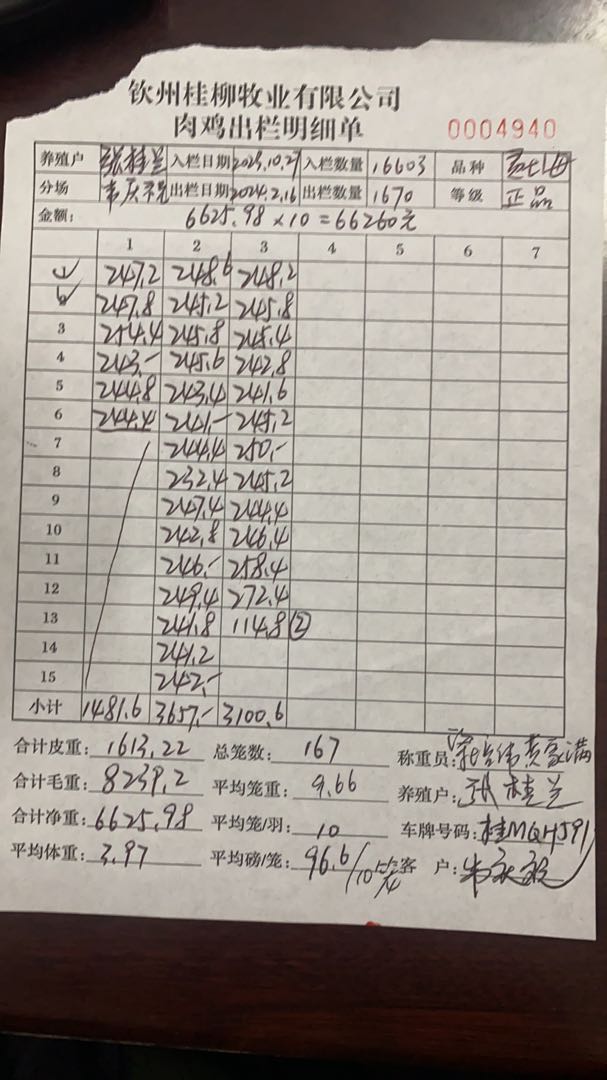 钦州桂柳牧业有限公司
肉鸡出栏明细单 0004940
养殖户 张桂兰 入栏日期 2023.10.27 入栏数量 16603 品种
分场 出栏日期 2024.2.16 出栏数量 1670 等级 正品
金额: 6625.98×10=66260元
1 2 3 4 5 6 7
1 247.2 248.6 248.2
2 247.8 245.2 245.8
3 254.4 245.8 245.4
4 243.- 245.6 242.8
5 244.8 243.4 241.6
6 244.4 241.- 245.2
7 244.4 250.-
8 232.4 245.2
9 247.4 244.4
10 242.8 246.4
11 246.- 258.4
12 249.4 272.4
13 241.8 114.8 ②
14 241.2
15 242.-
小计 1481.6 3657.- 3100.6
合计皮重: 1613.22 总笼数: 167 称重员:
合计毛重: 8239.2 平均笼重: 9.66 养殖户: 张桂兰
合计净重: 6625.98 平均笼/羽: 10 车牌号码: 桂MQH591
平均体重: 3.97 平均磅/笼: 96.6/10笼 客户: